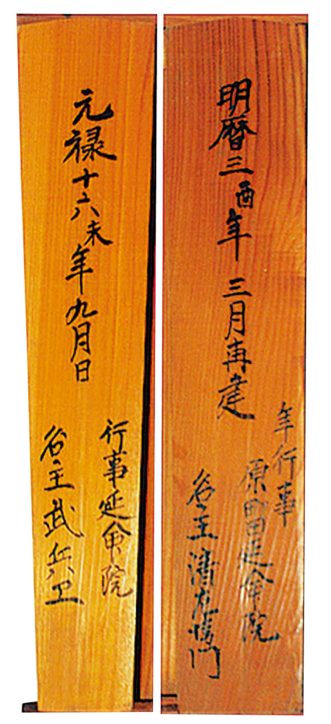 明暦三酉年 三月再建
年行事
原町田延命院
谷主清左衛門
元禄十六未年九月日
行事延命院
谷主武兵卫